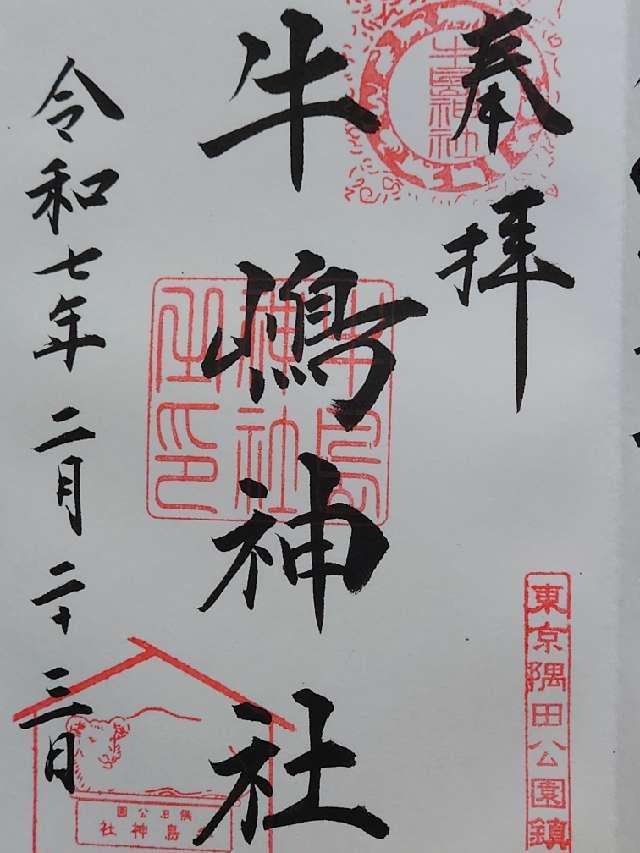 奉拝
牛嶋神社
令和七年二月二十三日
牛嶋神社
牛島神社之印
東京隅田公園鎮
隅田公園
牛島神社